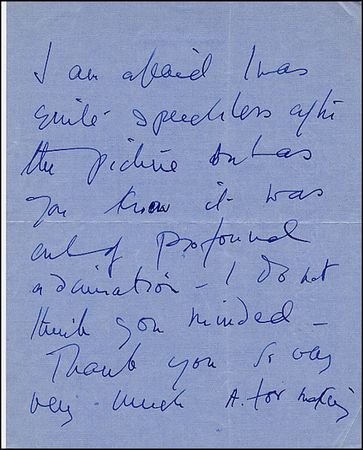 I am afraid I was
quite speechless after
the picture but as
you know it was
out of profound
admiration - I do not
think you minded -
Thank you so very
very much A. for making